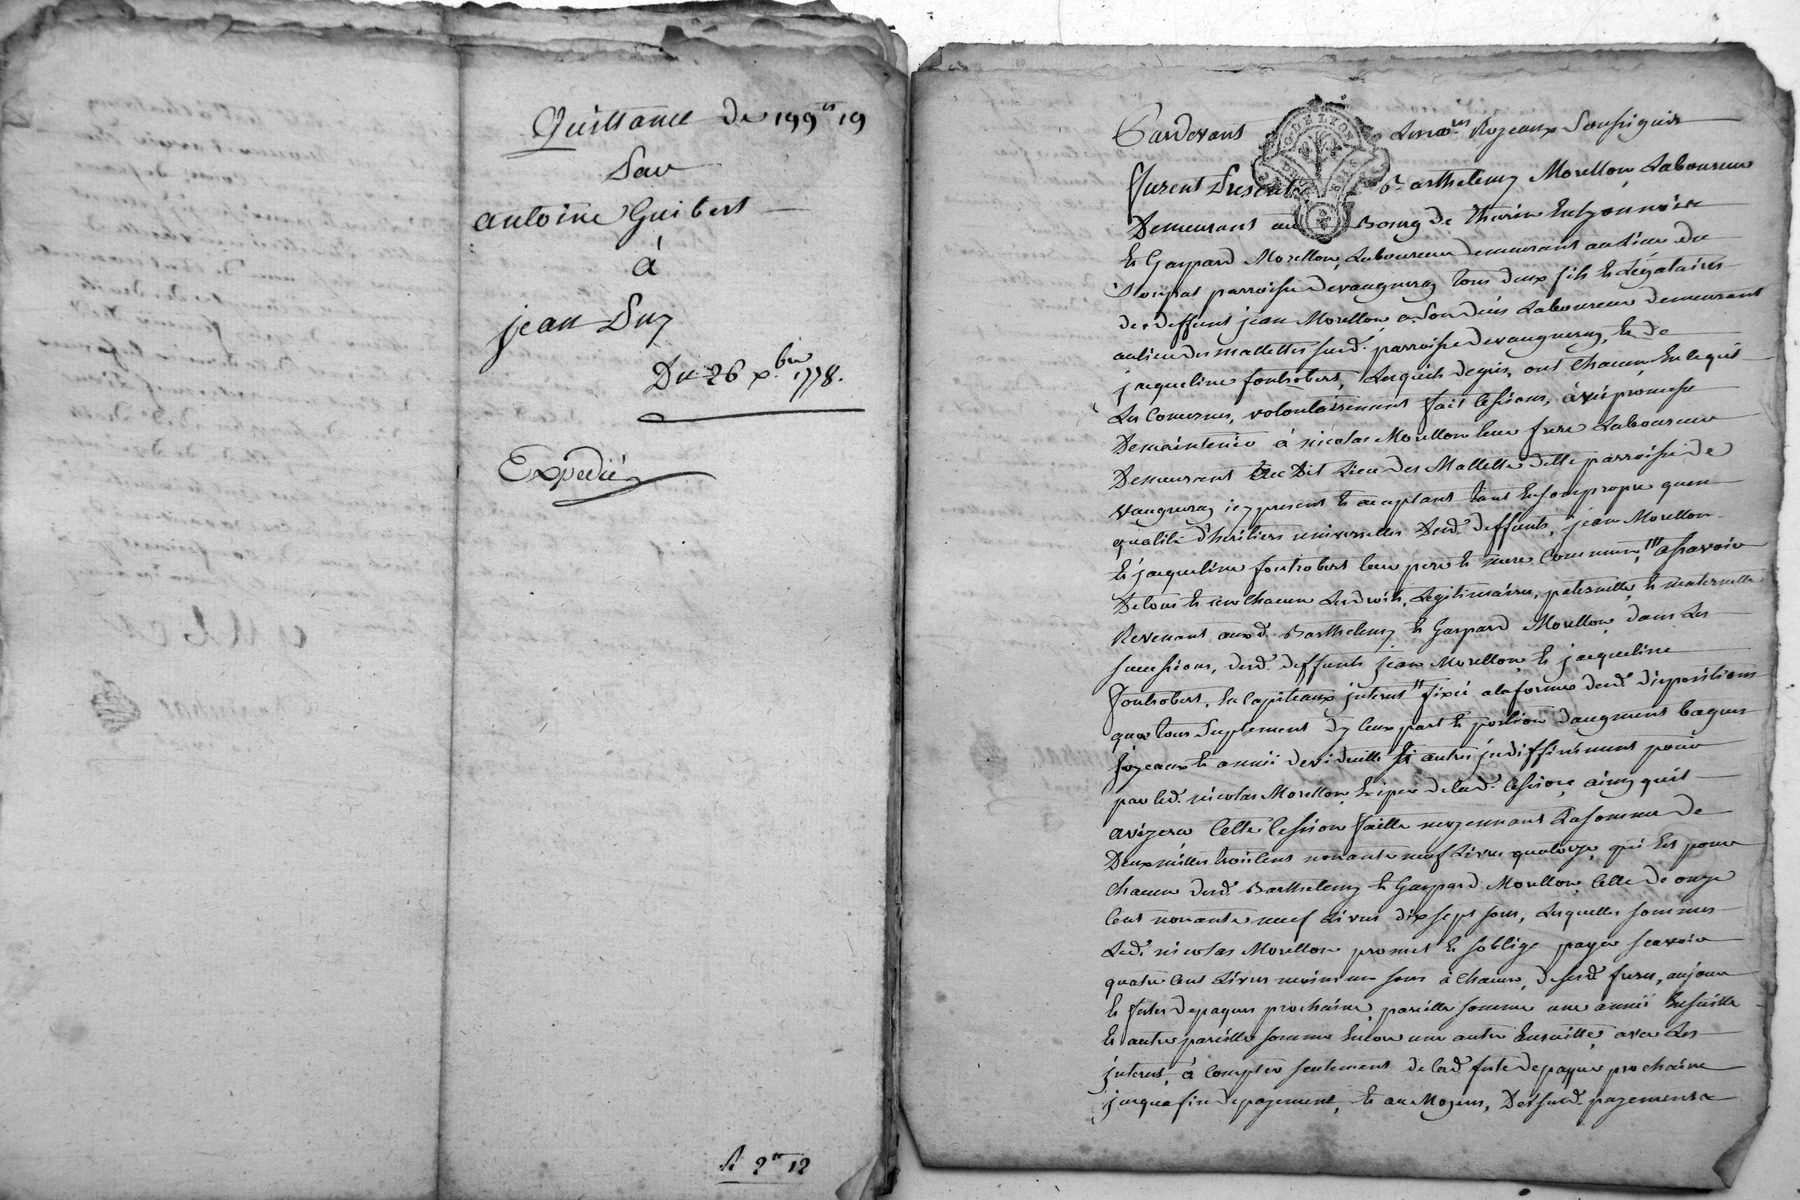 Quittance de 199ᵗᵗ 19
Par
antoine Guibert
à
jean Duy
Du 26 xbre 1778.
Expedié
R 2ᵗᵗ 12
Pardevant Les no.res Royaux Soussignés
furent presents Barthelemy Morellon Laboureur
Demeurant au Bourg de Thurin en Lyonnois
et Gaspard Morellon Laboureur demeurant au Lieu du
parroisse de vaugneray tous deux fils et Legataires
de deffunt jean Morellon Laboureur demeurant
au lieu des mallettes sud. parroisse de vaugneray, et de
jacqueline fontrobert, Lesquels de gré, ont chacun en ce qui
Les Concerne, volontairement fait Cession, avec promesse
De maintenir à nicolas Morellon leur frere Laboureur
Demeurant Dit Lieu des Mallettes ditte parroisse de
vaugneray icy present et acceptant tant en son propre qu'en
qualité d'heritier universelle Desd. deffunts, jean Morellon
et jacqueline fontrobert leur pere et mere Commun, assavoir
De tous et un chacun Les droits, Legitimaires, paternelle, et maternelle
Revenant auxd. Barthelemy et Gaspard Morellon, dans Les
successions, desd. deffunts jean Morellon et jacqueline
fontrobert, en capiteaux interest fixés a la forme desd. dispositions
que tous suplement dy leur part et portion d'augment bagues
joyeaux et année de viduitté et autres indiffiniment pour
par led. nicolas Morellon de lad. Cession, ainsy qu'il
avizera Cette Cession faitte moyennant La somme de
Deux milles trois Cent nonante neuf Livres quatorze, qui est pour
chacun desd. Barthelemy et Gaspard Morellon, Celle de onze
Cent nonante neuf Livres dix sept sous, Lesquelles sommes
Led. nicolas Morellon promet et s'oblige payer scavoir
quatre Cent Livres moins un sous à chacun, desesd. freres, au jour
et festes de paques prochaine, pareille somme une année Ensuitte
et autre pareille somme Encore une autre Ensuitte, avec Les
interest, à Compter seulement de lad. feste de paque prochaine
jusqua fin de payement, et au Moyen, Desusd. payements